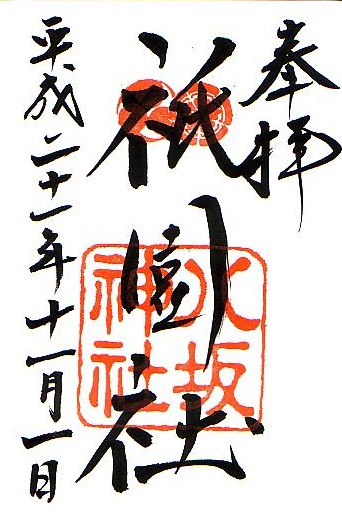 奉拝
祇園社
八坂
神社
平成二十一年十一月一日